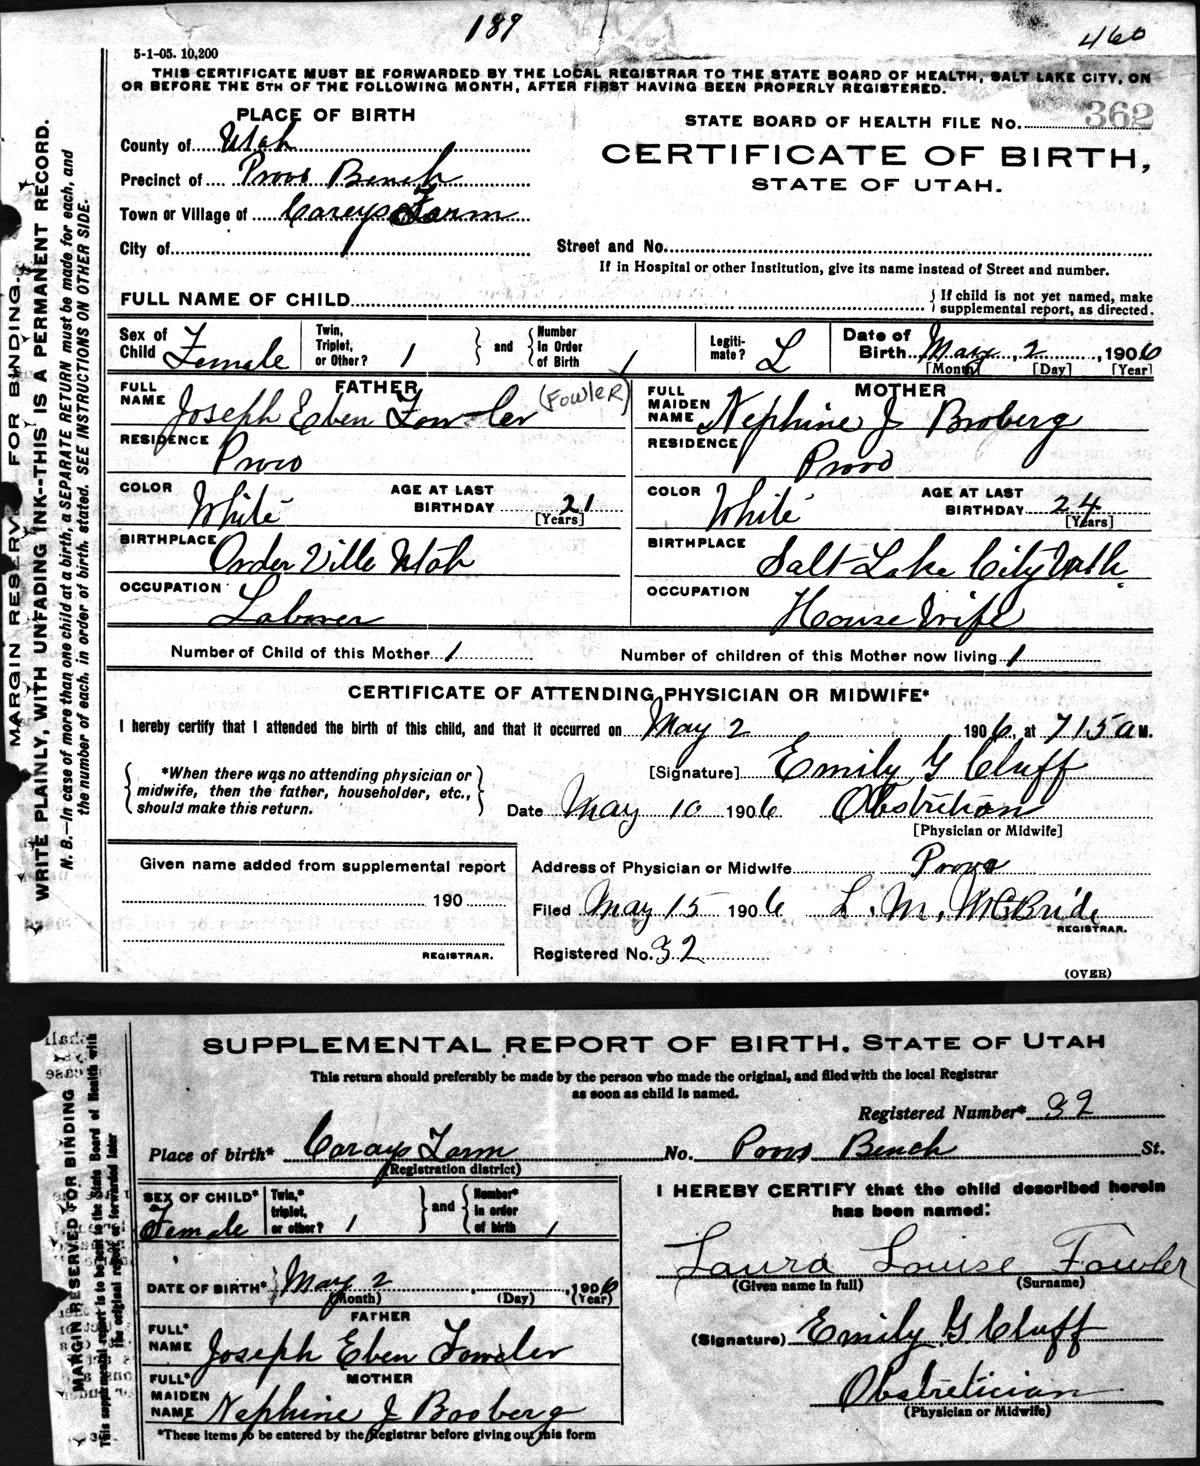 189
460
5-1-05. 10,200
THIS CERTIFICATE MUST BE FORWARDED BY THE LOCAL REGISTRAR TO THE STATE BOARD OF HEALTH, SALT LAKE CITY, ON
OR BEFORE THE 5TH OF THE FOLLOWING MONTH, AFTER FIRST HAVING BEEN PROPERLY REGISTERED.
PLACE OF BIRTH
STATE BOARD OF HEALTH FILE No. 362
County of Utah
CERTIFICATE OF BIRTH,
Precinct of Provo Bench
STATE OF UTAH.
Town or Village of Corays Farm
City of
Street and No.
If in Hospital or other Institution, give its name instead of Street and number.
FULL NAME OF CHILD
If child is not yet named, make
supplemental report, as directed.
Sex of Child Female
Twin, Triplet, or Other? 1
and
Number In Order of Birth 1
Legiti-mate? L
Date of Birth May 2, 1906
[Month] [Day] [Year]
FATHER
FULL NAME Joseph Eben Fowler (FOWLER)
MOTHER
FULL MAIDEN NAME Nephine J Broberg
RESIDENCE Provo
RESIDENCE Provo
COLOR White
AGE AT LAST BIRTHDAY 21 [Years]
COLOR White
AGE AT LAST BIRTHDAY 24 [Years]
BIRTHPLACE Order Ville Utah
BIRTHPLACE Salt Lake City Utah
OCCUPATION Laborer
OCCUPATION House Wife
Number of Child of this Mother 1
Number of children of this Mother now living 1
CERTIFICATE OF ATTENDING PHYSICIAN OR MIDWIFE*
I hereby certify that I attended the birth of this child, and that it occurred on May 2 1906, at 715 a M.
*When there was no attending physician or
midwife, then the father, householder, etc.,
should make this return.
[Signature] Emily G Cluff
Date May 10 1906 Obstretion
[Physician or Midwife]
Given name added from supplemental report
190
REGISTRAR.
Address of Physician or Midwife Provo
Filed May 15 1906 L. M. McBride
REGISTRAR.
Registered No. 32
(OVER)
MARGIN RESERV FOR BINDING.
WRITE PLAINLY, WITH UNFADING INK--THIS IS A PERMANENT RECORD.
N. B.—In case of more than one child at a birth, a SEPARATE RETURN must be made for each, and
the number of each, in order of birth, stated. SEE INSTRUCTIONS ON OTHER SIDE.
SUPPLEMENTAL REPORT OF BIRTH, STATE OF UTAH
This return should preferably be made by the person who made the original, and filed with the local Registrar
as soon as child is named.
Registered Number* 32
Place of birth* Corays Farm No. Provo Bench St.
(Registration district)
SEX OF CHILD* Female
Twin,* triplet, or other? 1
and
Number* in order of birth 1
I HEREBY CERTIFY that the child described herein
has been named:
Laura Louise Fowler
(Given name in full) (Surname)
DATE OF BIRTH* May 2, 1906
(Month) (Day) (Year)
FATHER
FULL* NAME Joseph Eben Fowler
(Signature) Emily G Cluff
MOTHER
FULL* MAIDEN NAME Nephine J Broberg
Obstretician
(Physician or Midwife)
*These items to be entered by the Registrar before giving out this form
MARGIN RESERVED FOR BINDING
This supplemental report is to be sent to the State Board of Health with
the original report or forwarded later